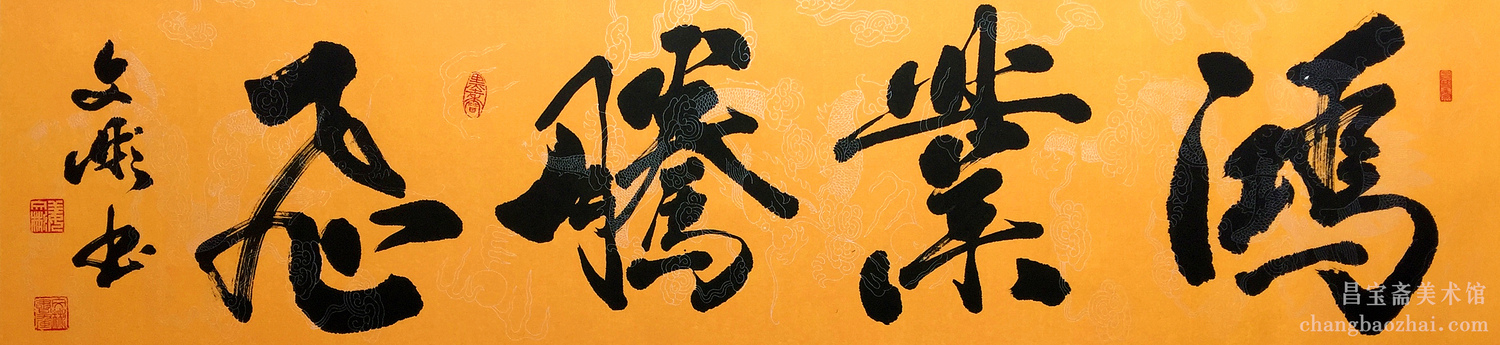 鸿業騰飛
文彬书
昌宝斋美术馆
changbaozhai.com